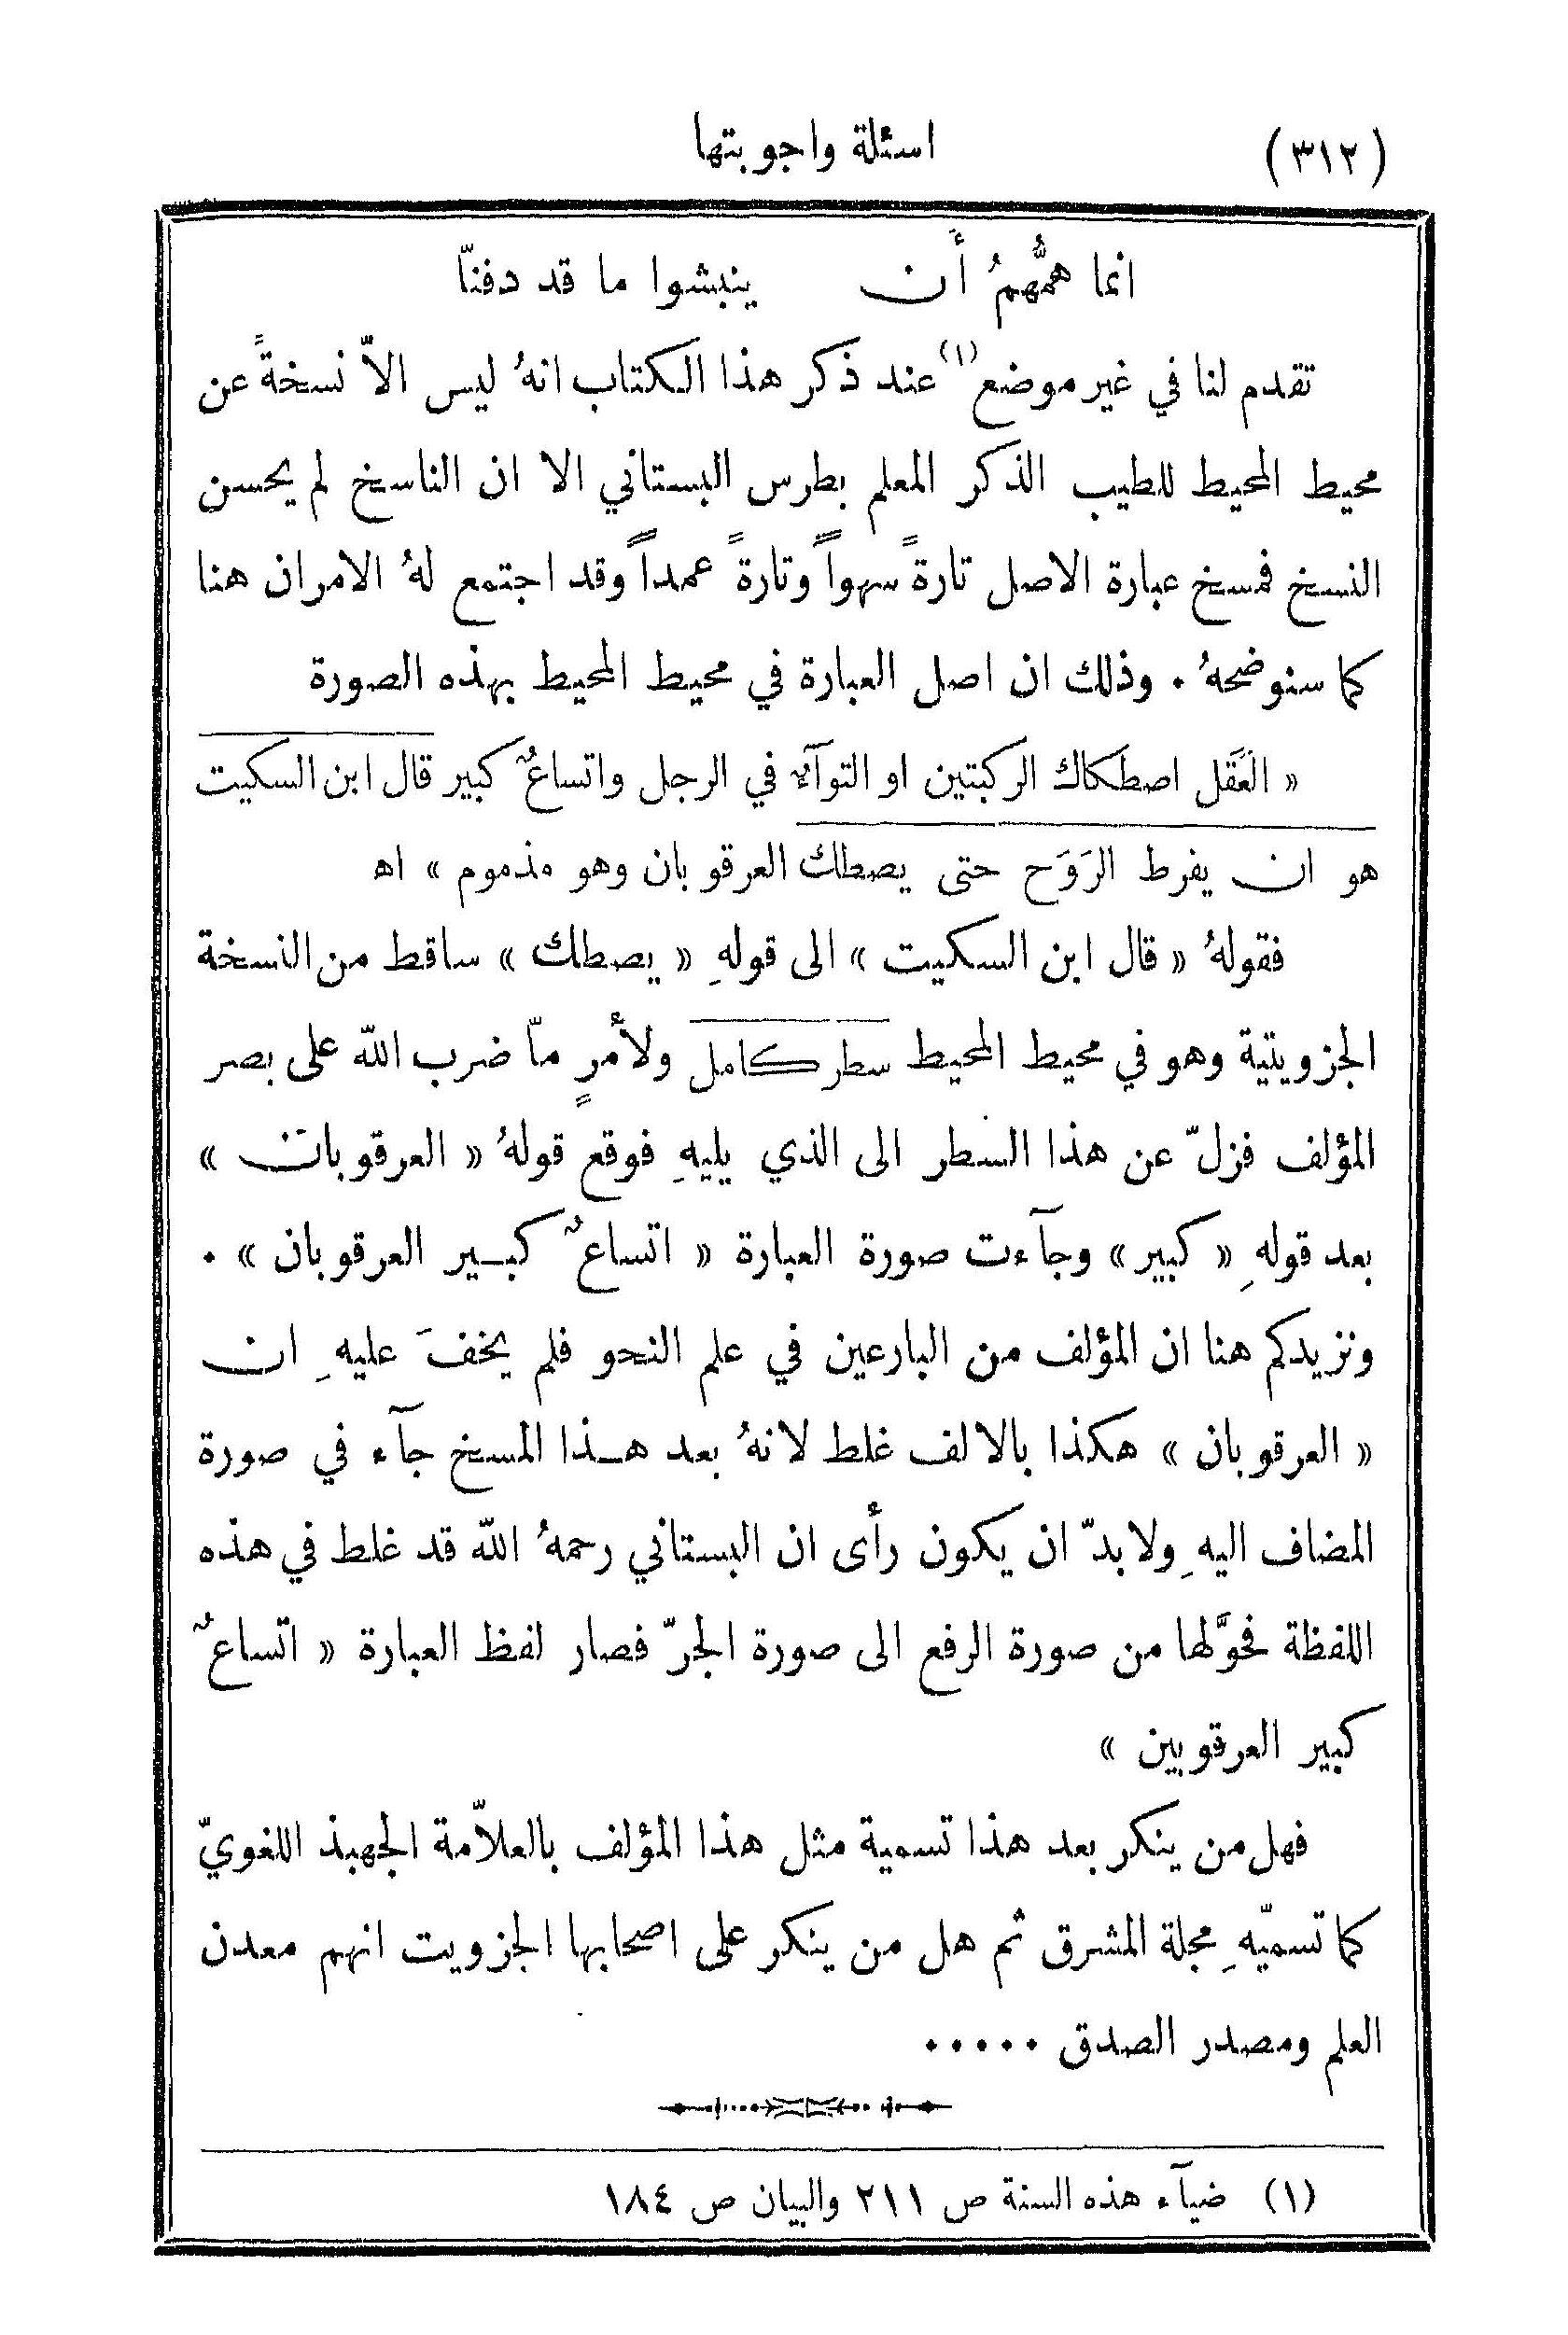 (٣١٢) اسئلة واجوبتها
انما همُّهمُ أَن ينبشوا ما قد دفنّا
تقدم لنا في غير موضع(١) عند ذكر هذا الكتاب انهُ ليس الاّ نسخةً عن
محيط المحيط للطيب الذكر المعلم بطرس البستاني الا ان الناسخ لم يحسن
النسخ فمسخ عبارة الاصل تارةً سهواً وتارةً عمداً وقد اجتمع لهُ الامران هنا
كما سنوضحهُ ٠ وذلك ان اصل العبارة في محيط المحيط بهذه الصورة
« العَقَل اصطكاك الركبتين او التوآء في الرجل واتساعٌ كبير قال ابن السكيت
هو ان يفرط الرَوَح حتى يصطك العرقوبان وهو مذموم » اه
فقولهُ « قال ابن السكيت » الى قولهِ « يصطك » ساقط من النسخة
الجزويتية وهو في محيط المحيط سطر كامل ولأمرٍ مّا ضرب اللّه على بصر
المؤلف فزلّ عن هذا السطر الى الذي يليهِ فوقع قولهُ « العرقوبان »
بعد قولهِ « كبير » وجآءت صورة العبارة « اتساعٌ كبير العرقوبان » ٠
ونزيدكم هنا ان المؤلف من البارعين في علم النحو فلم يخفَ عليهِ ان
« العرقوبان » هكذا بالالف غلط لانهُ بعد هذا المسخ جآء في صورة
المضاف اليهِ ولا بدّ ان يكون رأى ان البستاني رحمهُ اللّه قد غلط في هذه
اللفظة فحوَّلها من صورة الرفع الى صورة الجرّ فصار لفظ العبارة « اتساعٌ
كبير العرقوبين »
فهل من ينكر بعد هذا تسمية مثل هذا المؤلف بالعلاّمة الجهبذ اللغويّ
كما تسمّيهِ مجلة المشرق ثم هل من ينكر على اصحابها الجزويت انهم معدن
العلم ومصدر الصدق ٠٠٠٠٠
(١) ضيآء هذه السنة ص ٢١١ والبيان ص ١٨٤